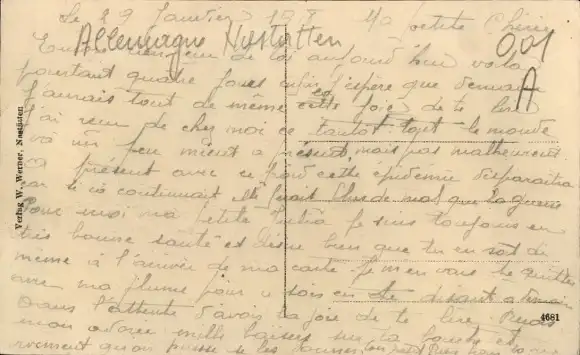 Le 29 Janvier 19 Ma petite Chérie
Allemagne Nastätten
0,01
A
Encore rien de toi aujourd'hui voila
pourtant quatre jours j'espère que demain
j'aurais tout de même cette joie de te lire
J'ai reçu de chez moi ce tantôt tout le monde
va un peu mieux a présent, mais pas malheureux
a présent avec ce froid cette épidémie disparaitra
car si ça continuait elle ferait plus de mal que la guerre
Pour moi ma petite je suis toujours en
très bonne santé et désire bien que tu en soit de
même à l'arrivée de ma carte. Je m'en vais te quitter
avec ma plume pour ce soir en te disant a demain
dans l'attente d'avoir la joie de te lire. Reçois
mon adorée mille baisers sur ta bouche et
vraiment qu'on puisse se les donner
Verlag W. Werner, Nastätten
4681